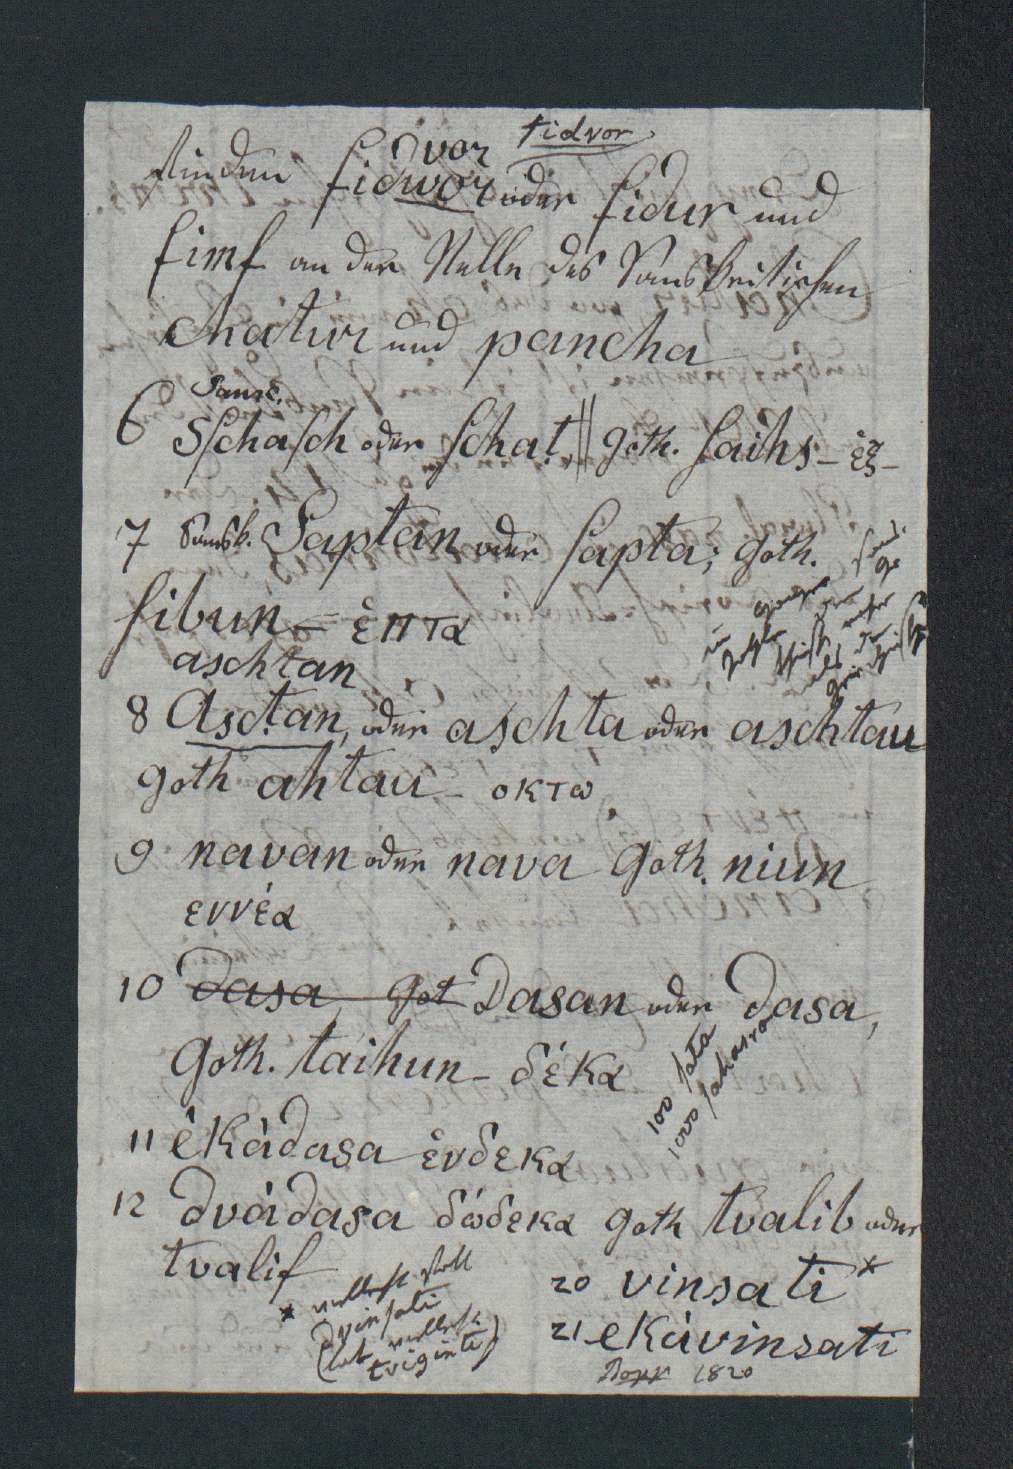 fidvor
vor
finden fidwor oder fidur und
fimf an der Stelle des Sanskritischen
chatur und pancha
Sansc.
6 Schasch oder schat, || goth. saihs – ἑξ –
7 Sansk. Saptan oder sapta; goth.
sibun – ἑπτα
aschtan
8 Asctan, oder aschta oder aschtau
goth ahtau – οκτω
9 navan oder nava Goth. niun
εννέα
10 dasa, Got Dasan oder dasa,
Goth. taihun – δέκα
100 sata
1000 sahasra
11 êkâdasa ἑνδεκα
12 dvâdasa δώδεκα goth tvalib oder
tvalif
20 vinsati *
21 ekâvinsati
* vielleicht statt
dvinsati
(lat vielleicht
tviginti)
Bopp 1820